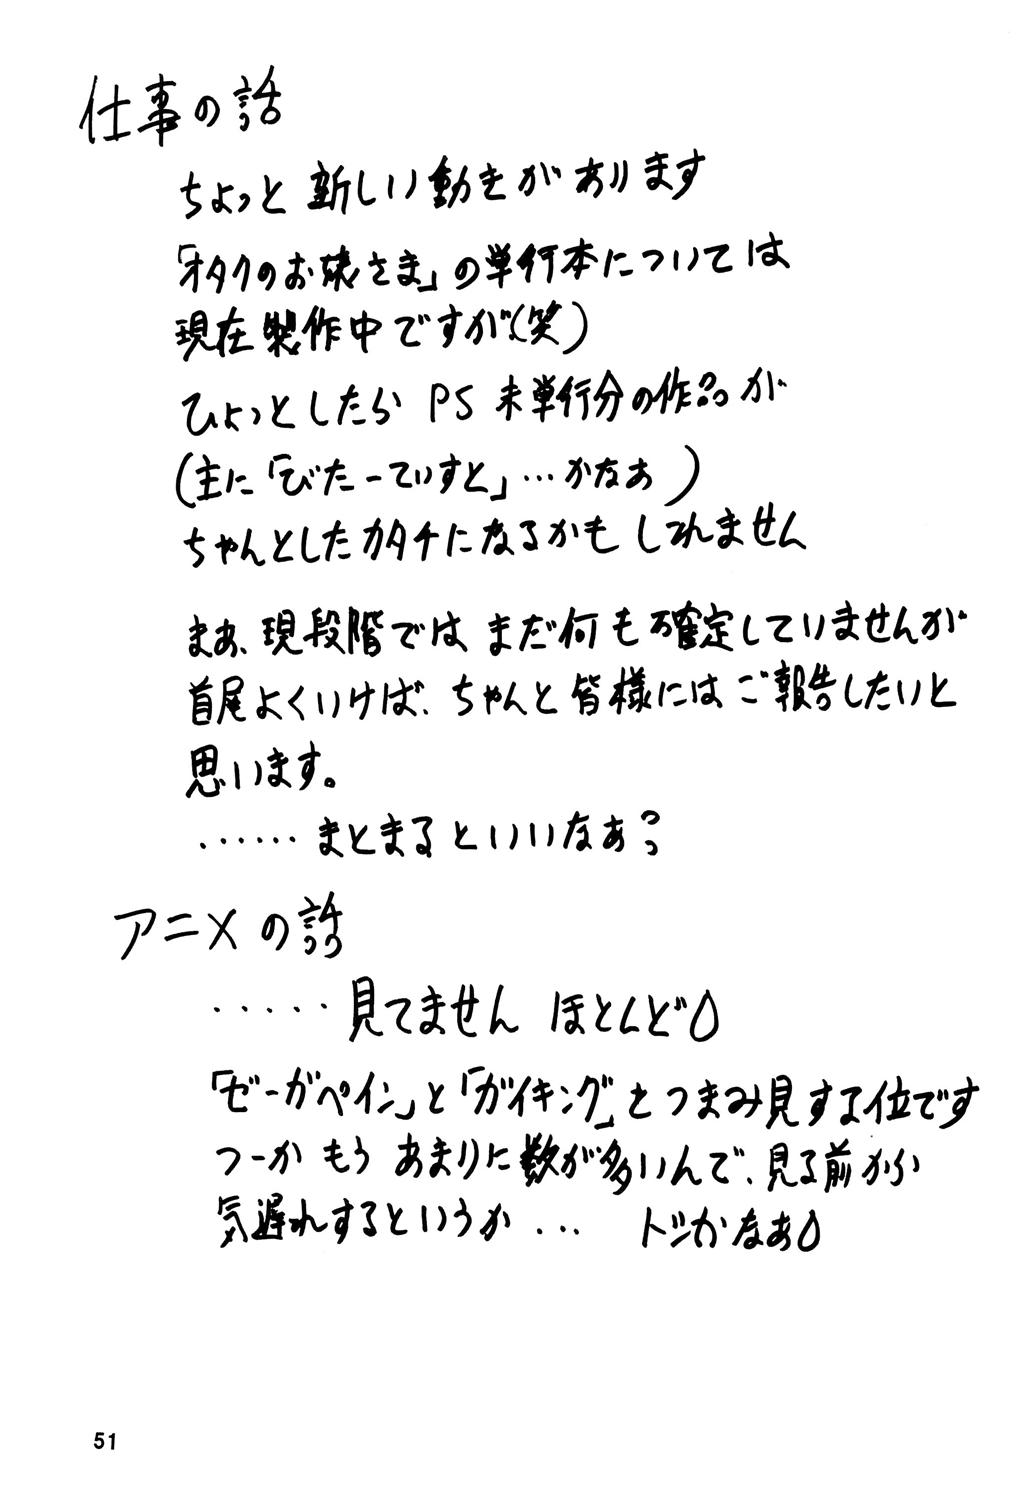 仕事の話
ちょっと新しい動きがあります
「オタクのお嬢さま」の単行本については
現在製作中ですが(笑)
ひょっとしたらPS未単行分の作品が
(主に「びたーていすと」…かなあ)
ちゃんとしたカタチになるかもしれません
まあ、現段階ではまだ何も確定していませんが
首尾よくいけば、ちゃんと皆様にはご報告したいと
思います。
……まとまるといいなぁ?
アニメの話
‥‥‥見てません ほとんど
「ゼーガペイン」と「ガイキング」をつまみ見する位です
つーかもうあまりに数が多いんで、見る前から
気遅れするというか… トシかなぁ
51